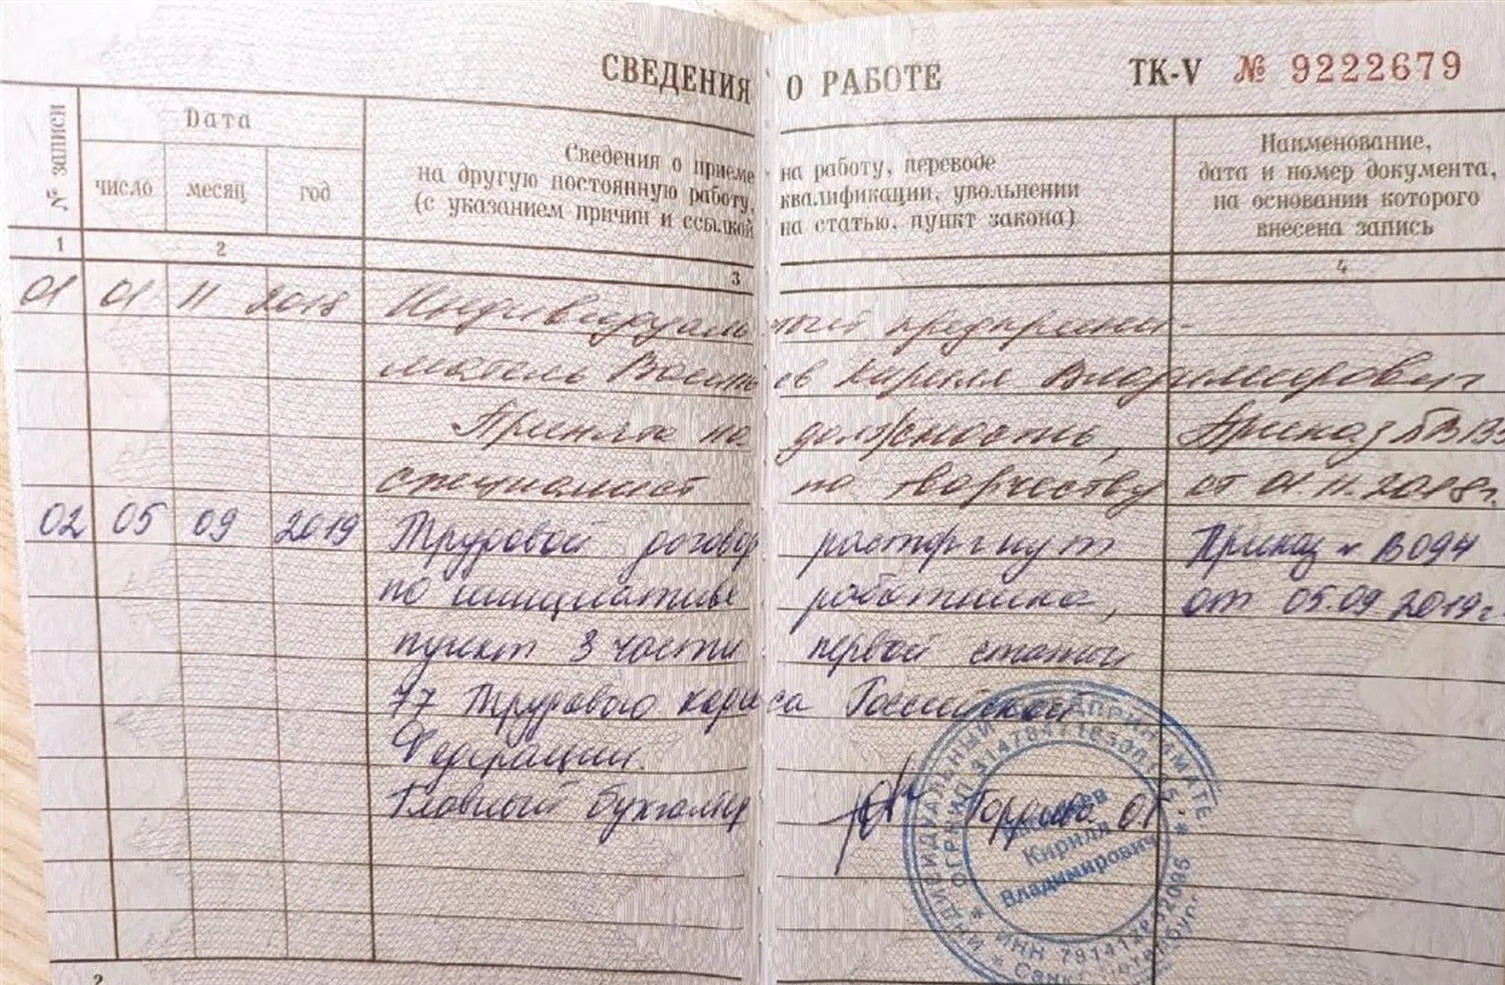 СВЕДЕНИЯ О РАБОТЕ ТК-V № 9222679
№ записи
Дата
число месяц год
Сведения о приеме на работу, переводе
на другую постоянную работу, квалификации, увольнении
(с указанием причин и ссылкой на статью, пункт закона)
Наименование,
дата и номер документа,
на основании которого
внесена запись
1 2 3 4
01 01 11 2018 Индивидуальный предприни-
матель Васильев Кирилл Владимирович
Принята на должность, Приказ
специалист по творчеству от 01.11.2018г.
02 05 09 2019 Трудовой договор расторгнут Приказ № В094
по инициативе работника, от 05.09.2019г
пункт 3 части первой статьи
77 Трудового кодекса Российской
Федерации.
Главный бухгалтер
ИНДИВИДУАЛЬНЫЙ ПРЕДПРИНИМАТЕ
ОГРНИП
Кирилл
Владимирович
ИНН
Санкт-Петербург
2